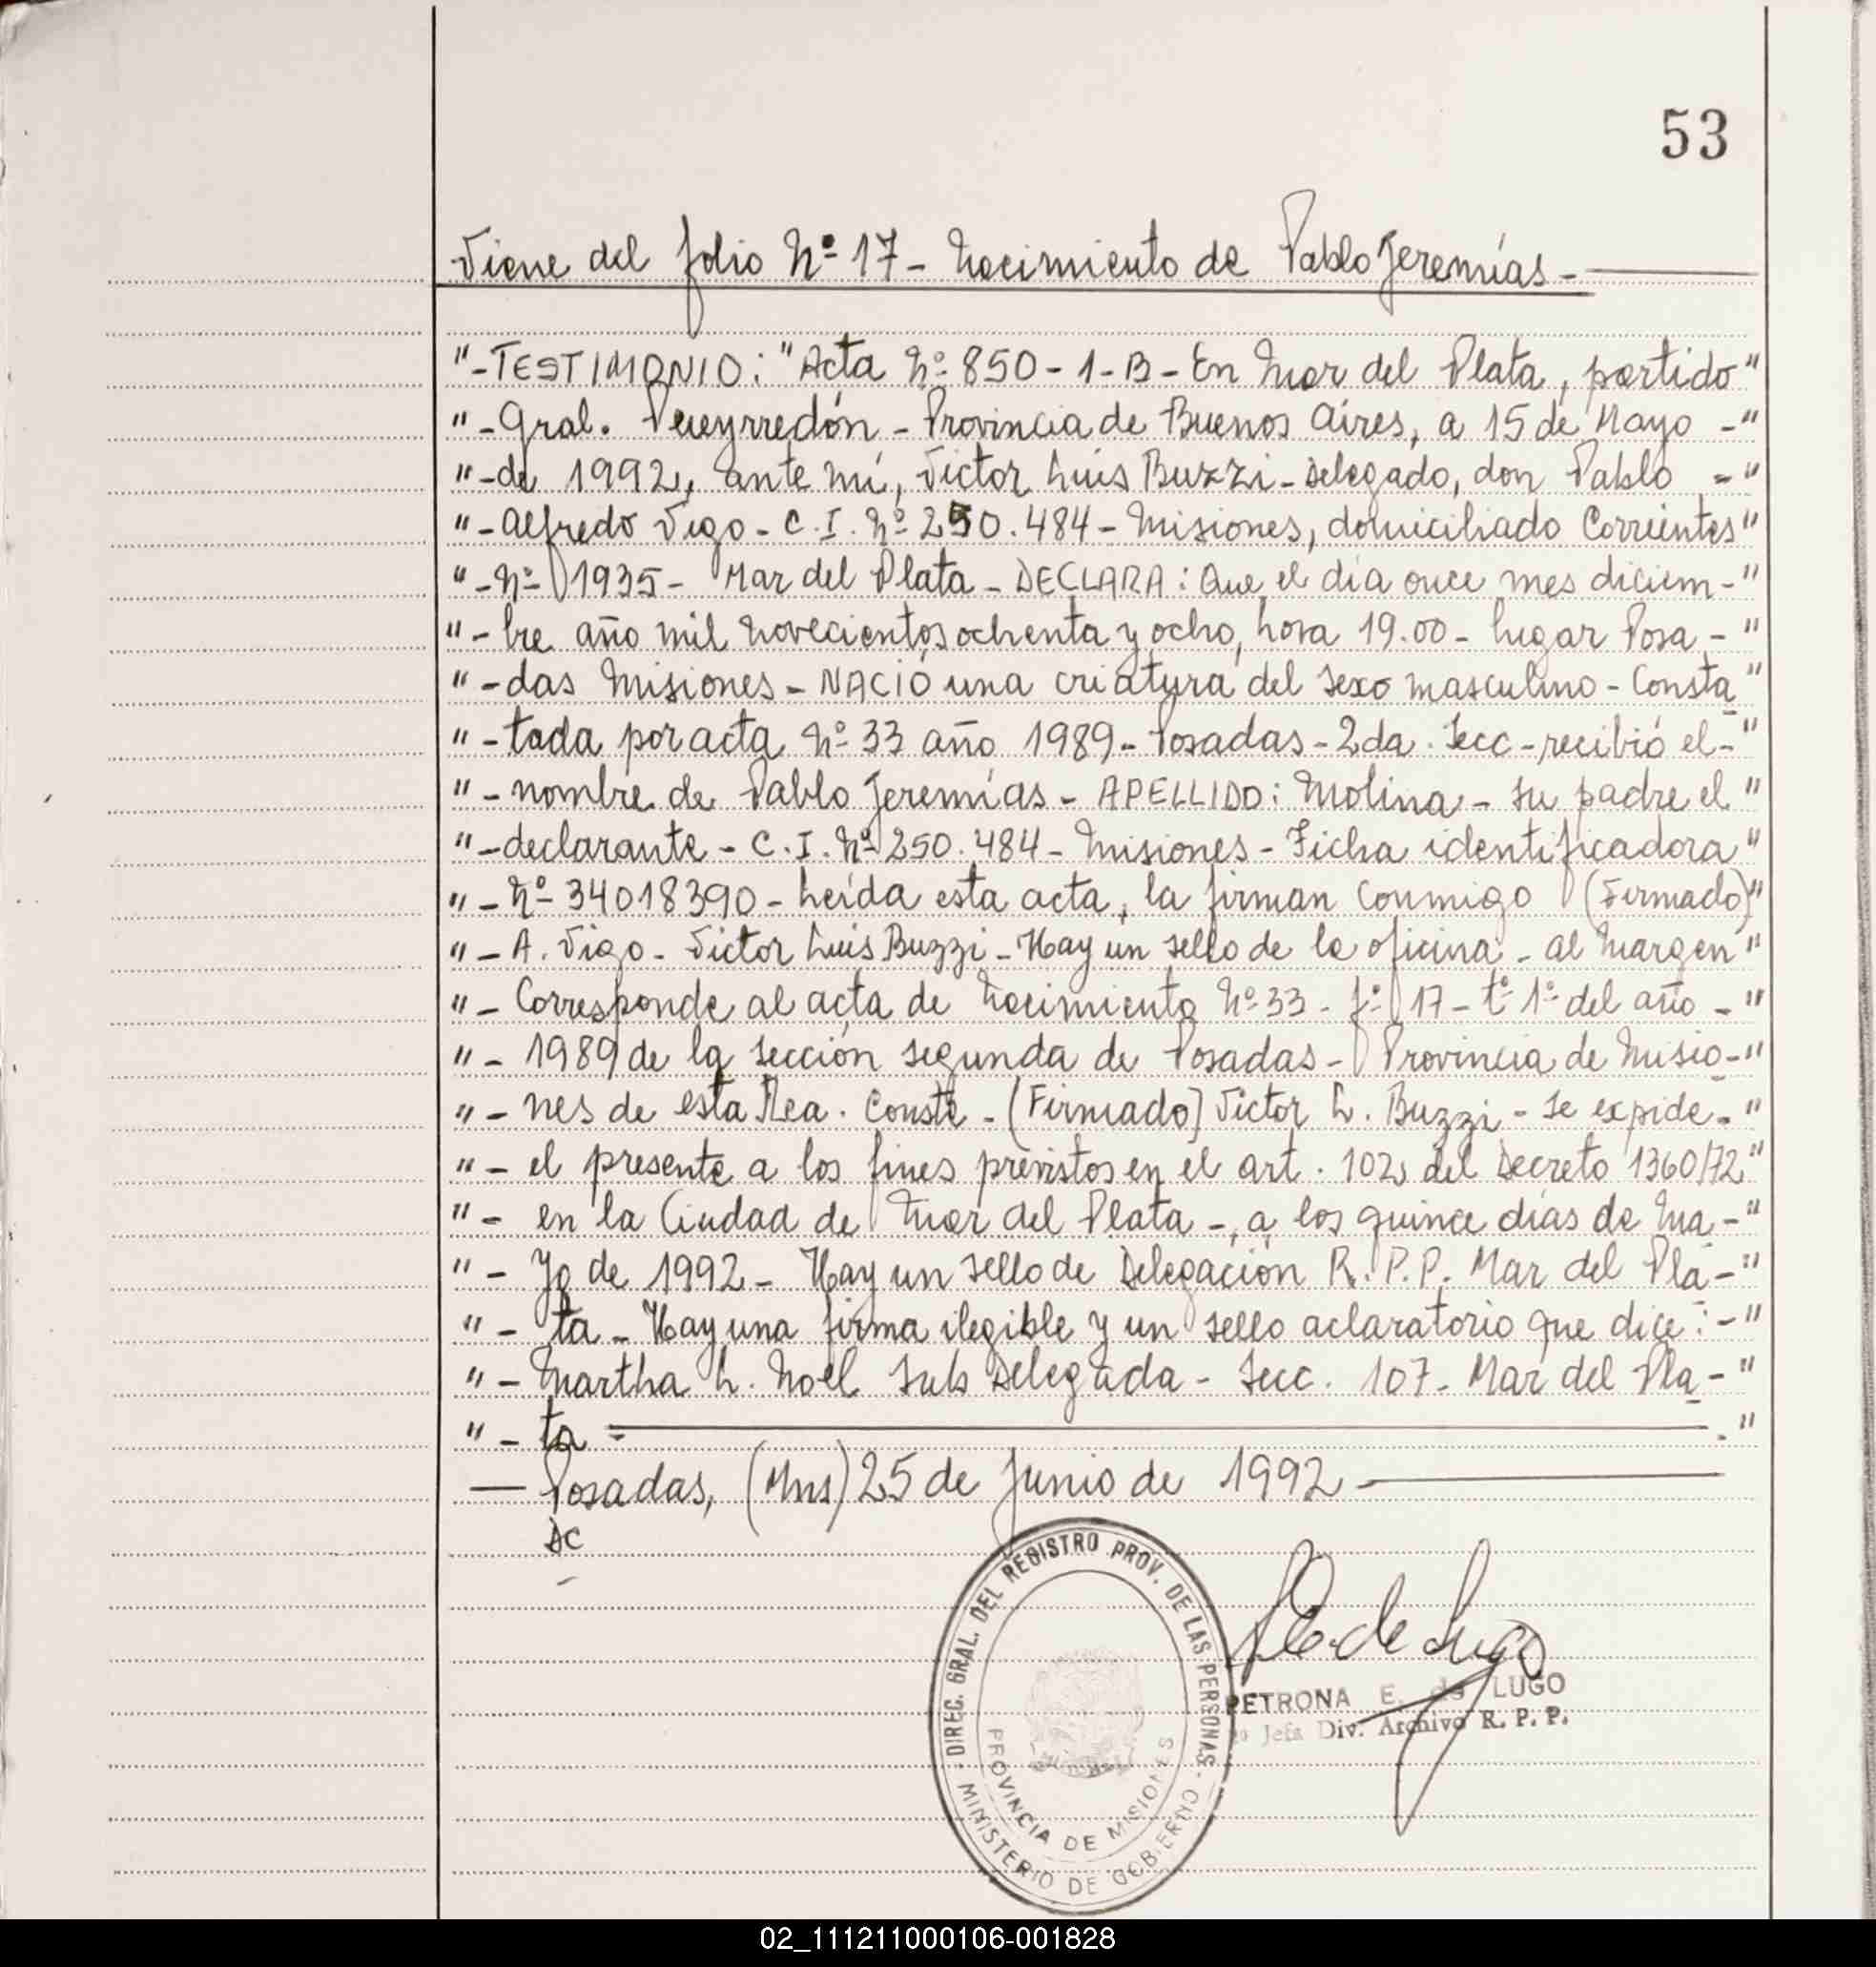 53
Viene del folio Nº 17 - Nacimiento de Pablo Jeremías -
"-TESTIMONIO: "Acta Nº 850 - 1 - B - En Mar del Plata, partido"
"-Gral. Pueyrredón - Provincia de Buenos Aires, a 15 de Mayo -"
"-de 1992, ante mí, Victor Luis Buzzi - Delegado, don Pablo -"
"-Alfredo Vigo - C.I. Nº 250.484 - Misiones, domiciliado Corrientes"
"-Nº 1935 - Mar del Plata - DECLARA: Que el día once mes diciem-"
"-bre año mil novecientos ochenta y ocho, hora 19.00 - lugar Posa-"
"-das Misiones - NACIÓ una criatura del sexo masculino - Consta"
"-tada por acta Nº 33 año 1989 - Posadas - 2da. Secc - recibió el-"
"-nombre de Pablo Jeremías - APELLIDO: Molina - su padre el"
"-declarante - C.I. Nº 250.484 - Misiones - Ficha identificadora"
"-Nº 34018390 - Leída esta acta, la firman conmigo (Firmado)"
"-A. Vigo - Victor Luis Buzzi - Hay un sello de la oficina - al margen"
"-Corresponde al acta de Nacimiento Nº 33 - fº 17 - tº 1º del año -"
"-1989 de la sección segunda de Posadas - Provincia de Misio-"
"-nes de esta Rea. Conste - (Firmado) Victor L. Buzzi - Se expide-"
"-el presente a los fines previstos en el art. 102 del Decreto 1360/72"
"-en la Ciudad de Mar del Plata -, a los quince días de Ma-"
"-yo de 1992 - Hay un sello de Delegación R.P.P. Mar del Pla-"
"-ta - Hay una firma ilegible y un sello aclaratorio que dice:-"
"-Martha L. Noel Sub Delegada - Secc. 107 - Mar del Pla-"
"-ta - ."
— Posadas, (Mns) 25 de Junio de 1992 —
DC
DIREC. GRAL. DEL REGISTRO PROV. DE LAS PERSONAS
MINISTERIO DE GOBIERNO
PROVINCIA DE MISIONES
E. de Lugo
PETRONA E. de LUGO
Jefa Div. Archivo R. P. P.
02_111211000106-001828